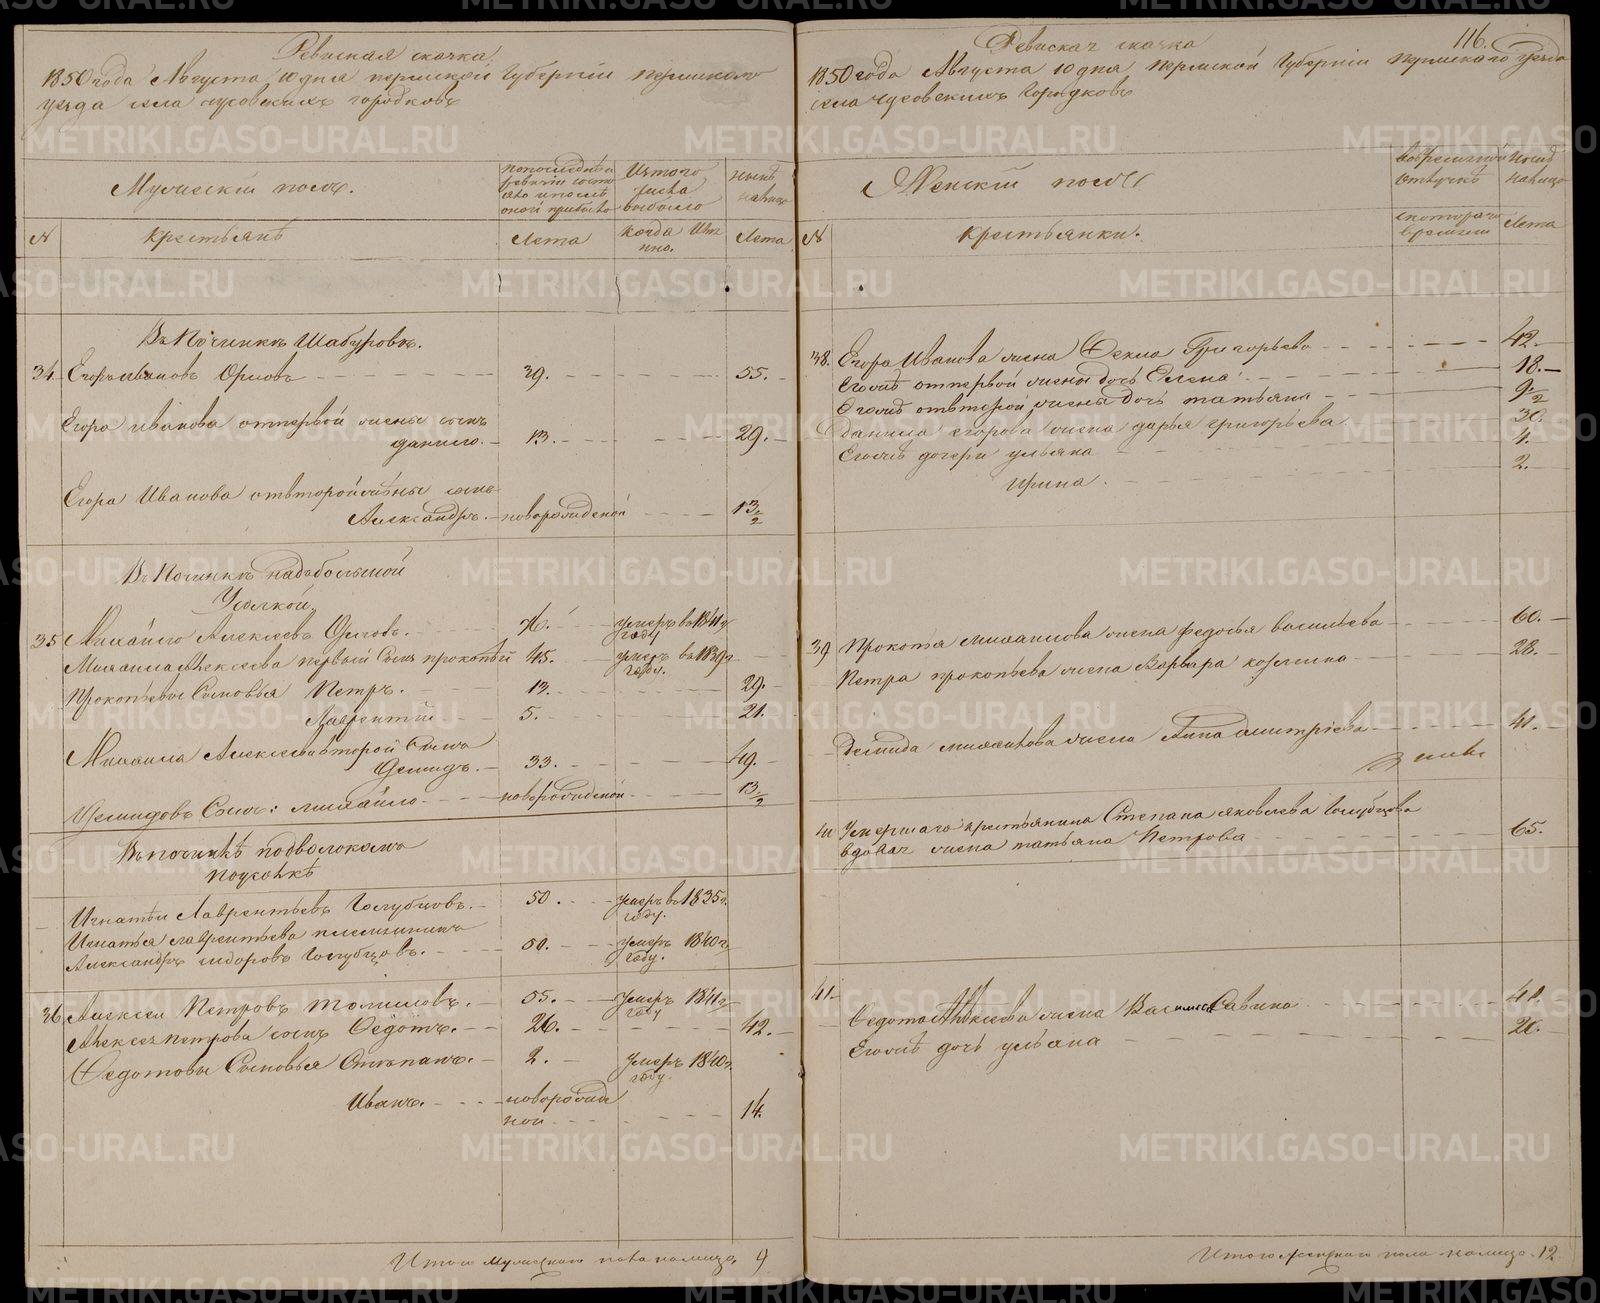 Ревиская скачка
1850 года Августа 10 дня пермской Губернии пермскаго
уезда села чусовскихъ городковъ
Мужескiй полъ.
по последней ревизiи состояло и после оной прибыло
Изъ того числа выбыло
ныне налицо
№
крестьянъ
Лета
когда имянно.
Лета
Въ Починке Шабуровъ.
34. Егоръ ивановъ Орловъ 39. 55.
Егора иванова от первой жены сынъ
данило. 13. 29.
Егора Иванова от второй жены сынъ
Александръ. новорожденой 13 1/2
Въ Починке надъ большой
Усолкой.
35 Михайло Алексеевъ Орловъ. 76. умеръ въ 1841 году
Михаила Алексеева первый Сынъ прокопей 45. умеръ въ 1839 году.
Прокопьевы Сыновья Петръ. 13. 29.
Лаврентiй 5. 21.
Михаила Алексеева второй Сынъ
Демидъ. 33. 49.
Демидовъ Сынъ: михайло новорожденой 13 1/2
Въ починке подволокомъ
поноске
Игнатей Лаврентьевъ Голубцовъ. 50. умеръ въ 1835 году.
Игнатья лаврентьева племянникъ
Александръ сидоровъ Голубцовъ. 50. умеръ 1840 году.
36 Алексей Петровъ Томиловъ. 55. умеръ 1841 году
Алексея петрова сынъ Федотъ. 26. 42.
Федотовы Сыновья Степанъ. 2. умеръ 1840 году.
Иванъ. новорожденой 14.
Итого мужескаго пола налицо. 9
116.
Ревиская скачка
1850 года Августа 10 дня пермской Губернiи пермскаго уезда
села чусовскихъ Городковъ
Женскiй полъ
во временной отлучке
ныне налицо
№
крестьянки.
с котораго времени
Лета
38. Егора Иванова жена Фекла Григорьева 42.
Егожъ от первой жены дочь Елена 18.
Егожъ от второй жены дочь татьяна 9 1/2
Данила егорова жена дарья григорьева 30.
Егожъ дочери ульяна 4.
ирина. 2.
39 Прокопья михаилова жена федосья васильева 60.
Петра прокопьева жена Варвара козмина 28.
Демида михаилова жена Анна дмитрiева 41.
40 Умершаго крестьянина Степана яковлева Голубцова
вдовая жена татьяна Петрова 65.
41 Федота Алексеева жена Василиса Савина 41.
Егожъ дочь ульяна 20.
Итого женскаго пола налицо. 12
METRIKI.GASO-URAL.RU